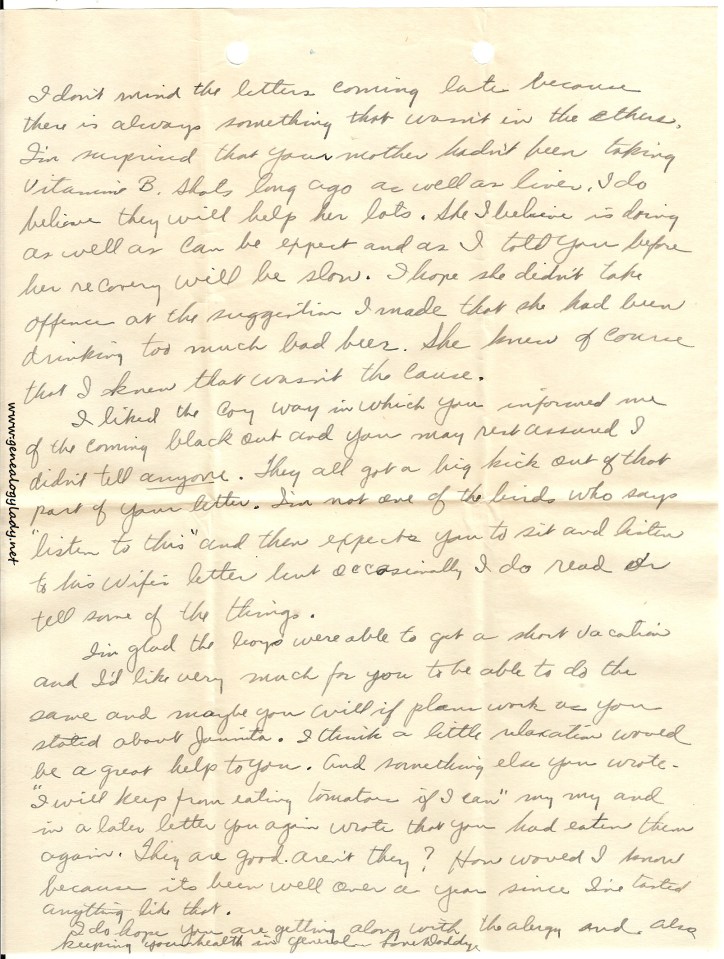 I don't mind the letters coming late because
there is always something that wasn't in the others.
I'm surprised that your mother hadn't been taking
Vitamine B. shots long ago as well as liver. I do
believe they will help her lots. She I believe is doing
as well as can be expect and as I told you before
her recovery will be slow. I hope she didn't take
offence at the suggestion I made that she had been
drinking too much bad beer. She knew of course
that I knew that wasn't the cause.
I liked the coy way in which you informed me
of the coming black out and you may rest assured I
didn't tell anyone. They all got a big kick out of that
part of your letter. I'm not one of the birds who says
"listen to this" and then expects you to sit and listen
to his wife's letter but occasionally I do read or
tell some of the things.
I'm glad the boys were able to get a short vacation
and I'd like very much for you to be able to do the
same and maybe you will if plans work as you
stated about Juanita. I think a little relaxation would
be a great help to you. And something else you wrote-
"I will keep from eating tomatoes if I can" my my and
in a later letter you again wrote that you had eaten them
again. They are good aren't they? How would I know
because its been well over a year since I've tasted
anything like that.
I do hope you are getting along with the alergy and also
keeping your health in general. Love Daddy
www.genealogylady.net